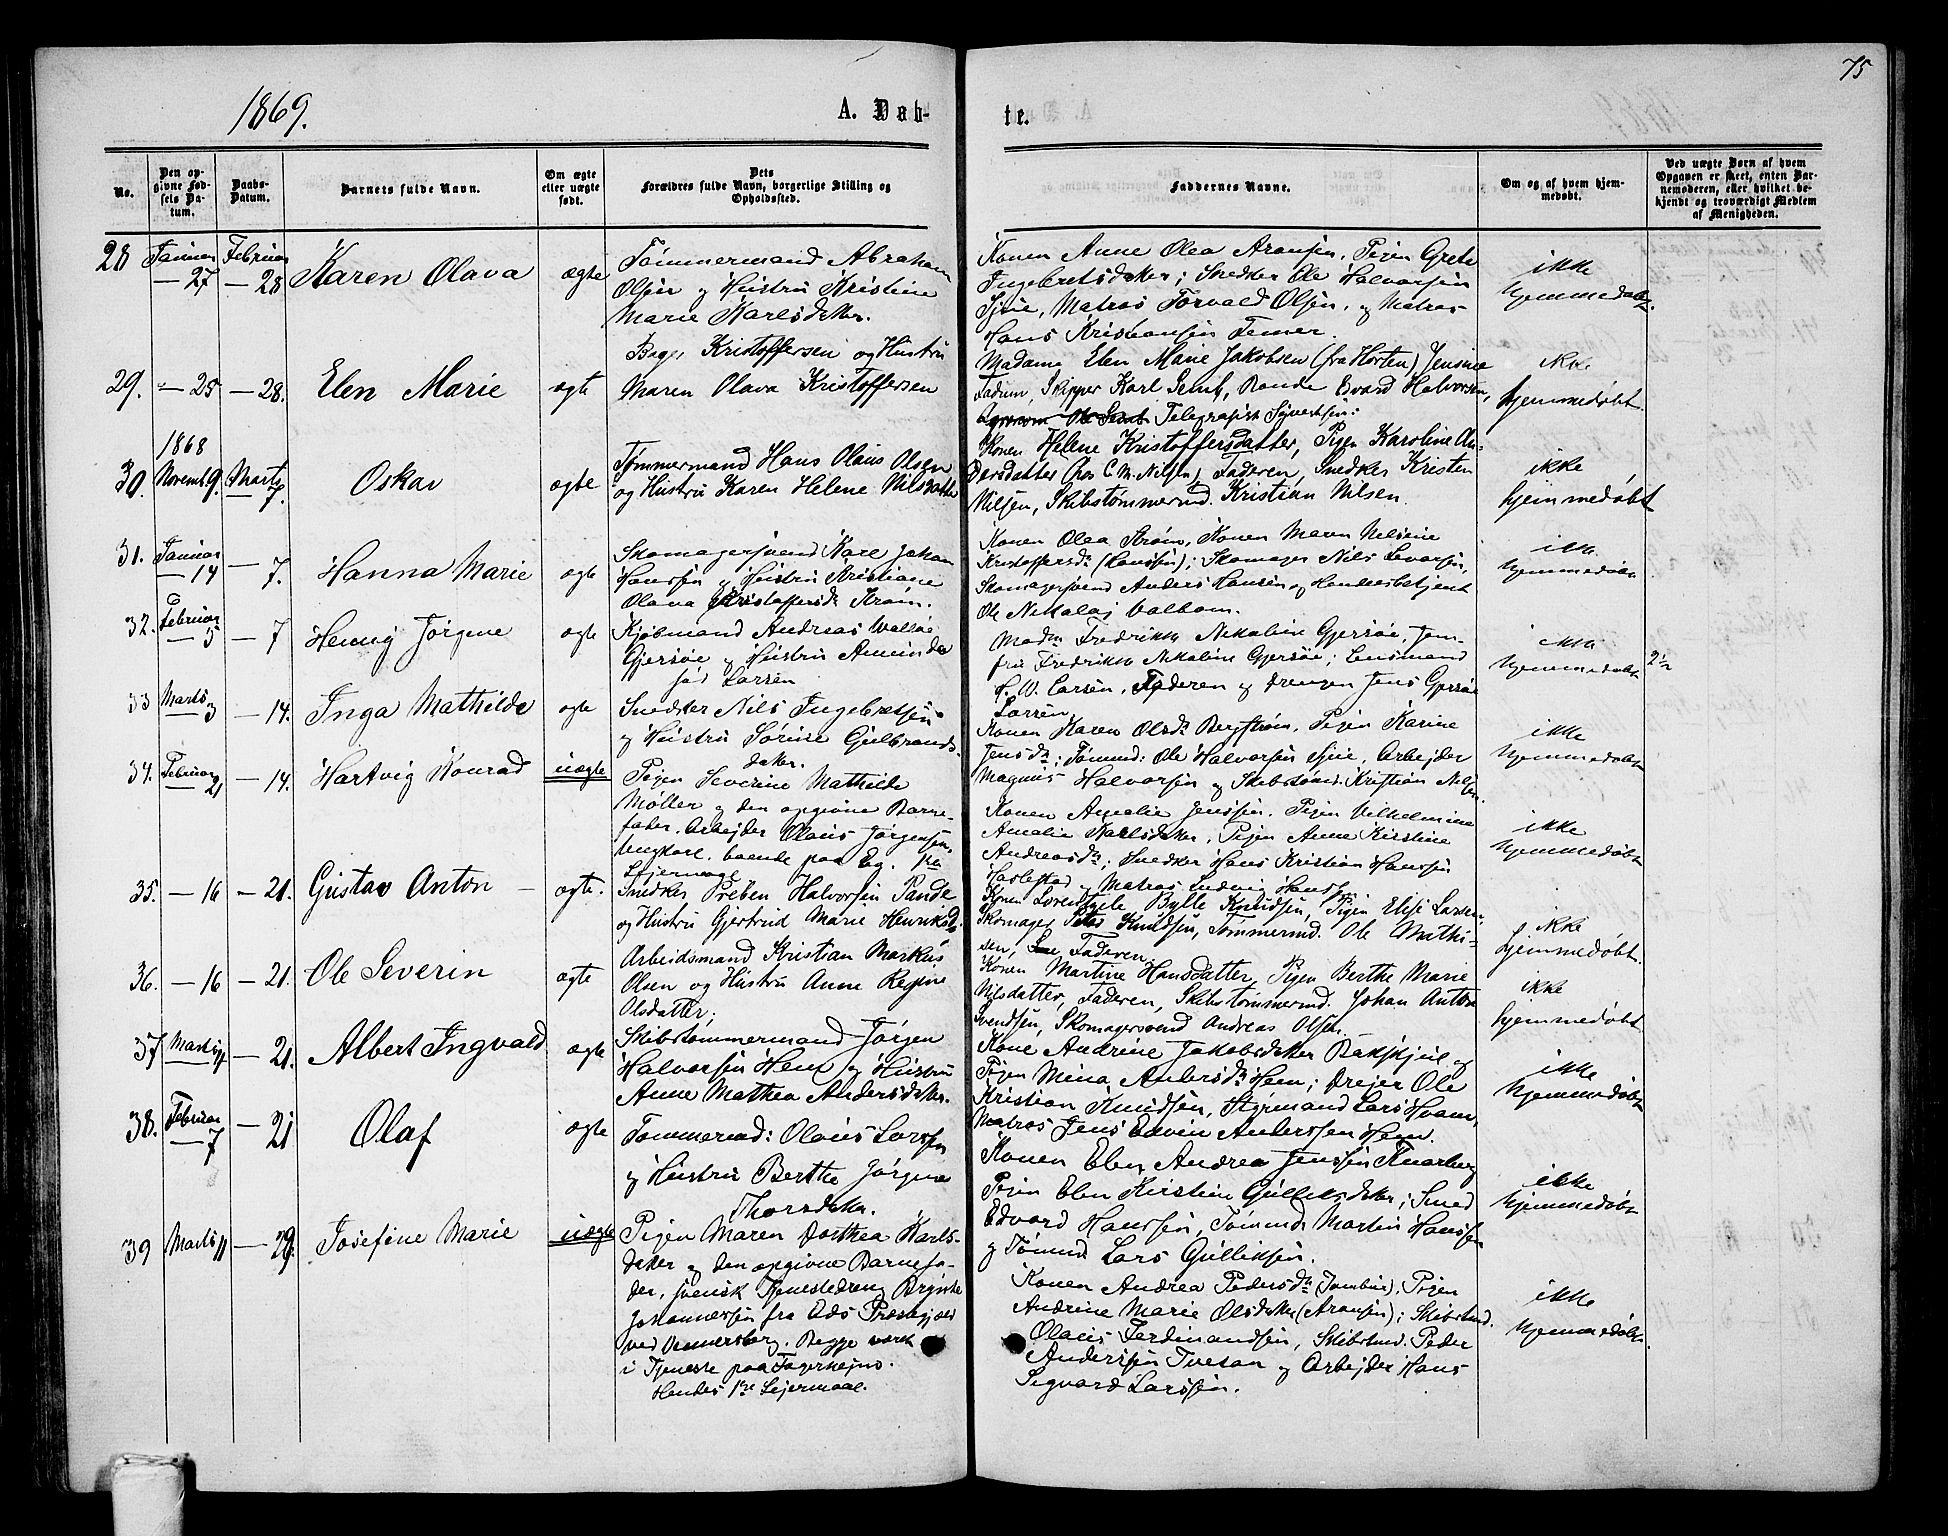 75
1869.
A. Døb-
te.
No.
Den opgivne Fødsels Datum.
Daabs-Datum.
Barnets fulde Navn.
Om ægte eller uægte født.
Dets Forældres fulde Navn, borgerlige Stilling og Opholdssted.
Faddernes Navne.
Om og af hvem hjemmedøbt.
Ved uægte Børn af hvem Opgaven er skeet, enten Barnemoderen, eller hvilket bekjendt og troværdigt Medlem af Menigheden.
28 Januar — 27 Februar — 28 Karen Olava ægte
Tømmermand Abraham
Olsen og Hustru Kristine
Marie Karlsdatter.
Konen Anne Olea Aronsen, Pigen Grete
Ingebretsdatter; Snedker Ole Halvorsen
Matros Torvald Olsen, og Matros
Hans Kristiansen
ikke
hjemmedøbt.
29. — 25 — 28. Elen Marie ægte
Kristoffersen og Hustru
Maren Olava Kristoffersen
Madame Elen Marie Jakobsen (fra Horten) Jensine
Skipper Karl Semb, Edvard Halvorsen,
Ole Semb Telegrafist
ikke
hjemmedøbt.
30. 1868 Novemb. 9. Marts 7. Oskar ægte
Tømmermand Hans Olaus Olsen
og Hustru Karen Helene Nilsdatter
Konen Helene Kristoffersdatter, Pigen Karoline An-
dersdatter (hos C. M. Nilsen), Faderen, Snedker Kristen
Nilsen, Skibstømmermd. Kristian Nilsen.
ikke
hjemmedøbt
31. Januar — 14 — 7. Hanna Marie ægte
Skomagersvend Karl Johan
Hanssen og Hustru Kristiane
Olava Kristoffersdr. Strøm.
Konen Olea Strøm, Konen Maren Nelsine
Kristoffersdr. (Hanssen); Skomager Nils Levorsen,
Skomagersvend Anders Hansen og Handelsbetjent
Ole Nikolaj Valbom.
ikke
hjemmedøbt
32. Februar — 5 — 7 Henny Jørgine ægte
Kjøbmand Andreas Walløe
Gjersøe og Hustru Aminda
fød Larsen
Madm Fredrikke Nikoline Gjersøe, Jom-
fru Fredrikke Nikoline Gjersøe; Lensmand
L. W. Larsen, Faderen og Drengen Jens Gjersøe
Larsen
ikke
hjemmedøbt
2 1/2
33 Marts 3 — 14. Inga Mathilde ægte
Snedker Nils Ingebretsen
og Hustru Sørine Gulbrands-
datter.
Konen Karen Olsdr. Bergstrøm, Pigen Karine
Jensdr; Tømmd: Ole Halvorsen Arbejder
Magnus Halvorsen og Skibstømd: Kristian Nilsen.
ikke
hjemmedøbt
34. Februar 21 — 14. Hartvig Konrad uægte
Pigen Severine Mathilde
Møller og den opgivne Barne-
fader, Arbejder Olaus Jørgensen,
Ungkarl, boende paa Eg. paa
Konen Amalie Jenssen, Pigen Vilhelmine
Amalie Karlsdatter, Pigen Anne Kirstine
Andreasdr; Snedker Hans Kristian Hanssen
Haslestad og Matros Ludvig Hanssen
ikke
hjemmedøbt
35. — 16 — 21. Gustav Anton — ægte.
Snedker Preben Halvorsen Rande
og Hustru Gjertrud Marie Henriksdr.
Konen Lorentzele Bylle Knudsen, Pigen Elise Larsen,
Skomager Peter Knudsen, Tømmermd. Ole Mathi-
sen, Faderen.
ikke
hjemmedøbt.
36. — 16 — 21. Ole Severin ægte
Arbeidsmand Kristian Markus
Olsen og Hustru Anne Regine
Olsdatter;
Konen Martine Hansdatter, Pigen Berthe Marie
Nilsdatter, Faderen, Skibstømmermd. Johan Anton
Svendsen, Skomagersvend Andreas Olsen.
ikke
hjemmedøbt
37 Marts 11 — 21. Albert Ingvald ægte
Skibstømmermand Jørgen
Halvorsen Hem og Hustru
Anne Mathea Andersdatter.
Kone Andrine Jakobsdatter Bakskjul og
Pigen Mina Andersdr. Hem; Drejer Ole
Kristian Knudsen, Styrmand Lars Hvam,
Matros Jens Edvin Anderssen Hem.
ikke
hjemmedøbt
38. Februar — 7 — 21 Olaf ægte
Tømmermd: Olaus Larssen
og Hustru Berthe Jørgine
Thorsdatter.
Konen Elen Andrea Jenssen Knarberg
Pigen Elen Kirstine Gulliksdatter; Smed
Edvard Hanssen, Tømmd. Martin Hanssen
og Tømmd. Lars Gulliksen.
ikke
hjemmedøbt
39 Marts 11 — 29. Josefine Marie uægte
Pigen Maren Dorthea Karls-
datter og den opgivne Barnefa-
der, svensk Tjenestedreng
Johannessen fra Eds Præstegjæld
ved Venersborg. Begge
i Tjeneste paa Fagerhejm.
Hendes 1ste Lejermaal.
Konen Andrea Pedersdr. Pigen
Andrine Marie Olsdatter (Aronsen); Skibstmd.
Olaus Ferdinandsen, Skibstmd. Peder
Anderssen Tveson og Arbejder Hans
Segvard Larssen.
ikke
hjemmedøbt